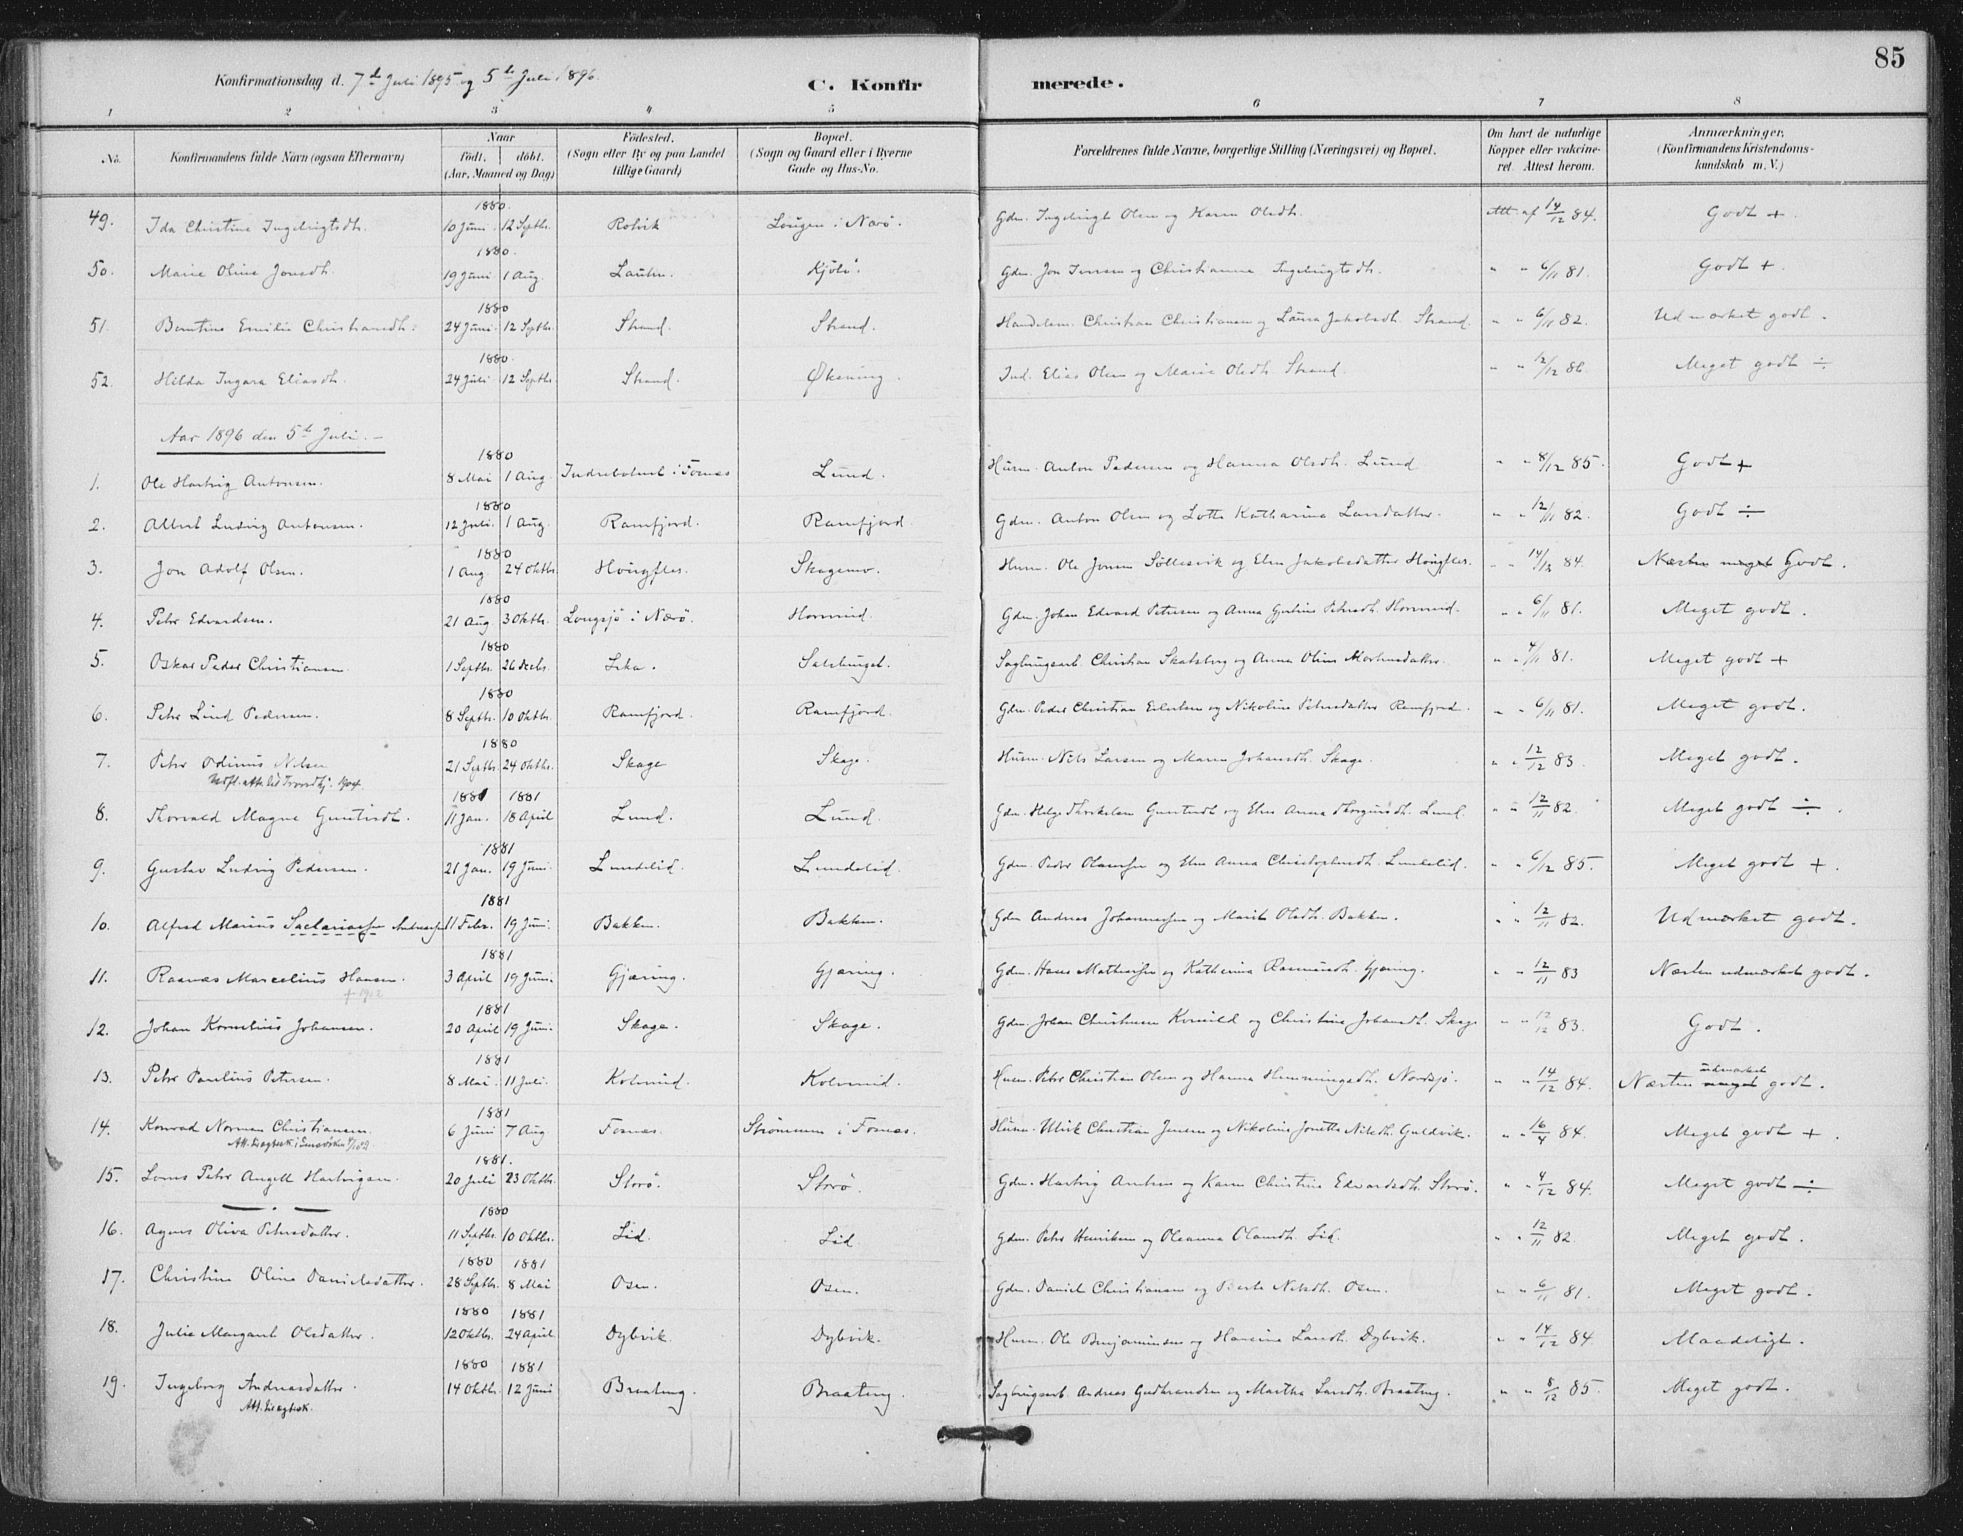 85
Konfirmationsdag d. 7de Juli 1895 og 5te Juli 1896.
C. Konfirmerede.
1 2 3 4 5 6 7 8
No. Konfirmandens fulde Navn (ogsaa Efternavn) Naar födt. döbt. (Aar, Maaned og Dag) Födested. (Sogn eller By og paa Landet tillige Gaard) Bopæl. (Sogn og Gaard eller i Byerne Gade og Hus-No. Forældrenes fulde Navne, borgerlige Stilling (Næringsvei) og Bopæl. Om havt de naturlige Kopper eller vakcineret. Attest herom. Anmærkninger. (Konfirmandens Kristendomskundskab m. V.)
49. Ida Christine Ingebrigtsdtr. 1880. 10 Juni 12 Septbr. Rolvik i Nærö. Gdm. Ingebrigt Olsen og Karen Olsdtr. Att. af 14/12 84. Godt +
50. Marie Oline Jonsdtr. 1880. 19 Juni 1 Aug. Kjölö. Gdm. Jon Iversen og Christianna Ingebrigtsdtr. " " 6/11 81. Godt +
51. Berntine Emilie Christiansdtr. 1880 24 Juni 12 Septbr. Strand. Strand. Handelsm. Christian Christiansen og Laura Jakobsdtr. Strand. " " 6/11 82. Udmærket godt.
52. Hilda Ingara Eliasdtr. 1880. 24 Juli 12 Septbr. Strand. Økening. Ind. Elias Olsen og Marie Olsdtr. Strand. " " 12/12 86. Meget godt ÷
Aar 1896 den 5te Juli.
1. Ole Hartvig Antonsen. 1880 8 Mai 1 Aug. i Fosnes Lund. Husm. Anton Pedersen og Hanna Olsdtr. Lund " " 8/12 85. Godt +
2. Albert Ludvig Antonsen. 1880 12 Juli. 1 Aug. Ramfjord. Ramfjord Gdm. Anton Olsen og Lotte Katharina Larsdatter. " " 12/11 82. Godt ÷
3. Jon Adolf Olsen. 1880 1 Aug. 24 Oktbr. Höugfles. Skagemo. Husm. Ole Jonsen Söllesvik og Elen Jakobsdatter Höugfles. " " 14/12 84. Næsten meget Godt.
4. Peter Edvardsen. 1880 21 Aug. 3 Oktbr. Longsjö i Nærö. Gdm. Johan Edvard Petersen og Anna Petersdtr. " " 6/11 81. Meget godt.
5. Oskar Peder Christiansen. 1880 1 Septbr. 26 Decbr. Leka. Salsbruget. Sagbrugsarb. Christian Skatsberg og Anna Oline Mortensdatter. " " 4/11 81. Meget godt +
6. Peter Lind Pedersen. 1880 8 Septbr. 10 Oktbr. Ramfjord. Ramfjord. Gdm. Peder Christian Eilertsen og Nikoline Petersdatter Ramfjord. " " 6/11 81. Meget godt.
7. Peter Odinius Nilsen 1880 21 Septbr. 24 Oktbr. Skage Skage. Husm. Nils Larsen og Maren Johansdtr. Skage. " " 12/12 83. Meget godt.
1904.
8. Thorvald Magne Gunstvedt. 1881 1881 11 Jan. 18 April Lund. Lund. Gdm. Helge Gunstvedt og Anna Lund. " " 12/11 82. Meget godt ÷.
9. Gustav Ludvig Pedersen. 1881 21 Jan. 19 Juni. Lundelid. Lundelid. Gdm. Peder Olaussen og Anna Christophersdtr. Lundelid. " " 6/12 85. Meget godt +.
10. Alfred Marius Sactariassen Andreassen 1881 11 Febr. 19 Juni. Bakken. Bakken. Gdm Andreas Johannessen og Marit Olsdtr. Bakken. " " 12/11 82. Udmærket godt.
11. Rasmus Marcelius Hansen. 1881 3 April 19 Juni. Gjæring. Gjæring. Gdm. Hans Mathiassen og Katherina Rasmusdtr. Gjæring. " " 12/11 83 Næsten udmærket godt.
+ 1912
12. Johan Kornelius Johansen. 1881 20 April 19 Juni. Skage. Skage. Gdm. Johan Christensen og Christine Johansdtr. Skage " " 12/12 83. Godt.
13. Peter Paulius Petersen. 1881 8 Mai. 11 Juli. Kolvemid. Kolvemid. Husm. Peter Christian Olsen og Hanna Hemmingsdtr. Nordsjö. " " 14/12 84. Næsten meget udmærket godt.
14. Konrad Norman Christiansen. 1881 6 Juni 7 Aug. Fosnes. Strömmen i Fosnes. Husm. Ulrik Christian Jensen og Nikoline Jonette Nilsdtr. Guldvik. " " 16/4 84. Meget godt +.
15. Lorns Peter Angell Hartvigsen. 1881. 20 Juli 23 Oktbr. Storö. Storö. Gdm. Hartvig Arntsen og Karen Christine Edvardsdtr. Storö. " " 4/12 84. Meget godt ÷
16. Agnes Oliva Petersdatter. 1880 11 Septbr. 10 Oktbr. Lid. Lid Gdm. Peter Henriksen og Oleanna Olausdtr. Lid. " " 12/11 82. Meget godt.
17. Christine Oline Danielsdatter. 1880 1881 28 Septbr. 8 Mai Osen. Osen. Gdm. Daniel Christiansen og Berte Nilsdtr. Osen. " " 6/11 81. Meget godt.
18. Julie Margaret Olsdatter. 1880 1881 12 Oktbr. 24 April Dybvik. Dybvik. Husm. Ole Benjaminsen og Hansine Larsdtr. Dybvik. " " 14/12 84 Maadeligt.
19. Ingeborg Andreasdatter. 1880 1881 14 Oktbr. 12 Juni Braating. Braating. Sagbrugsarb. Andreas Gudbrandsen og Martha Larsdtr. Braating. " " 8/12 85. Meget godt.